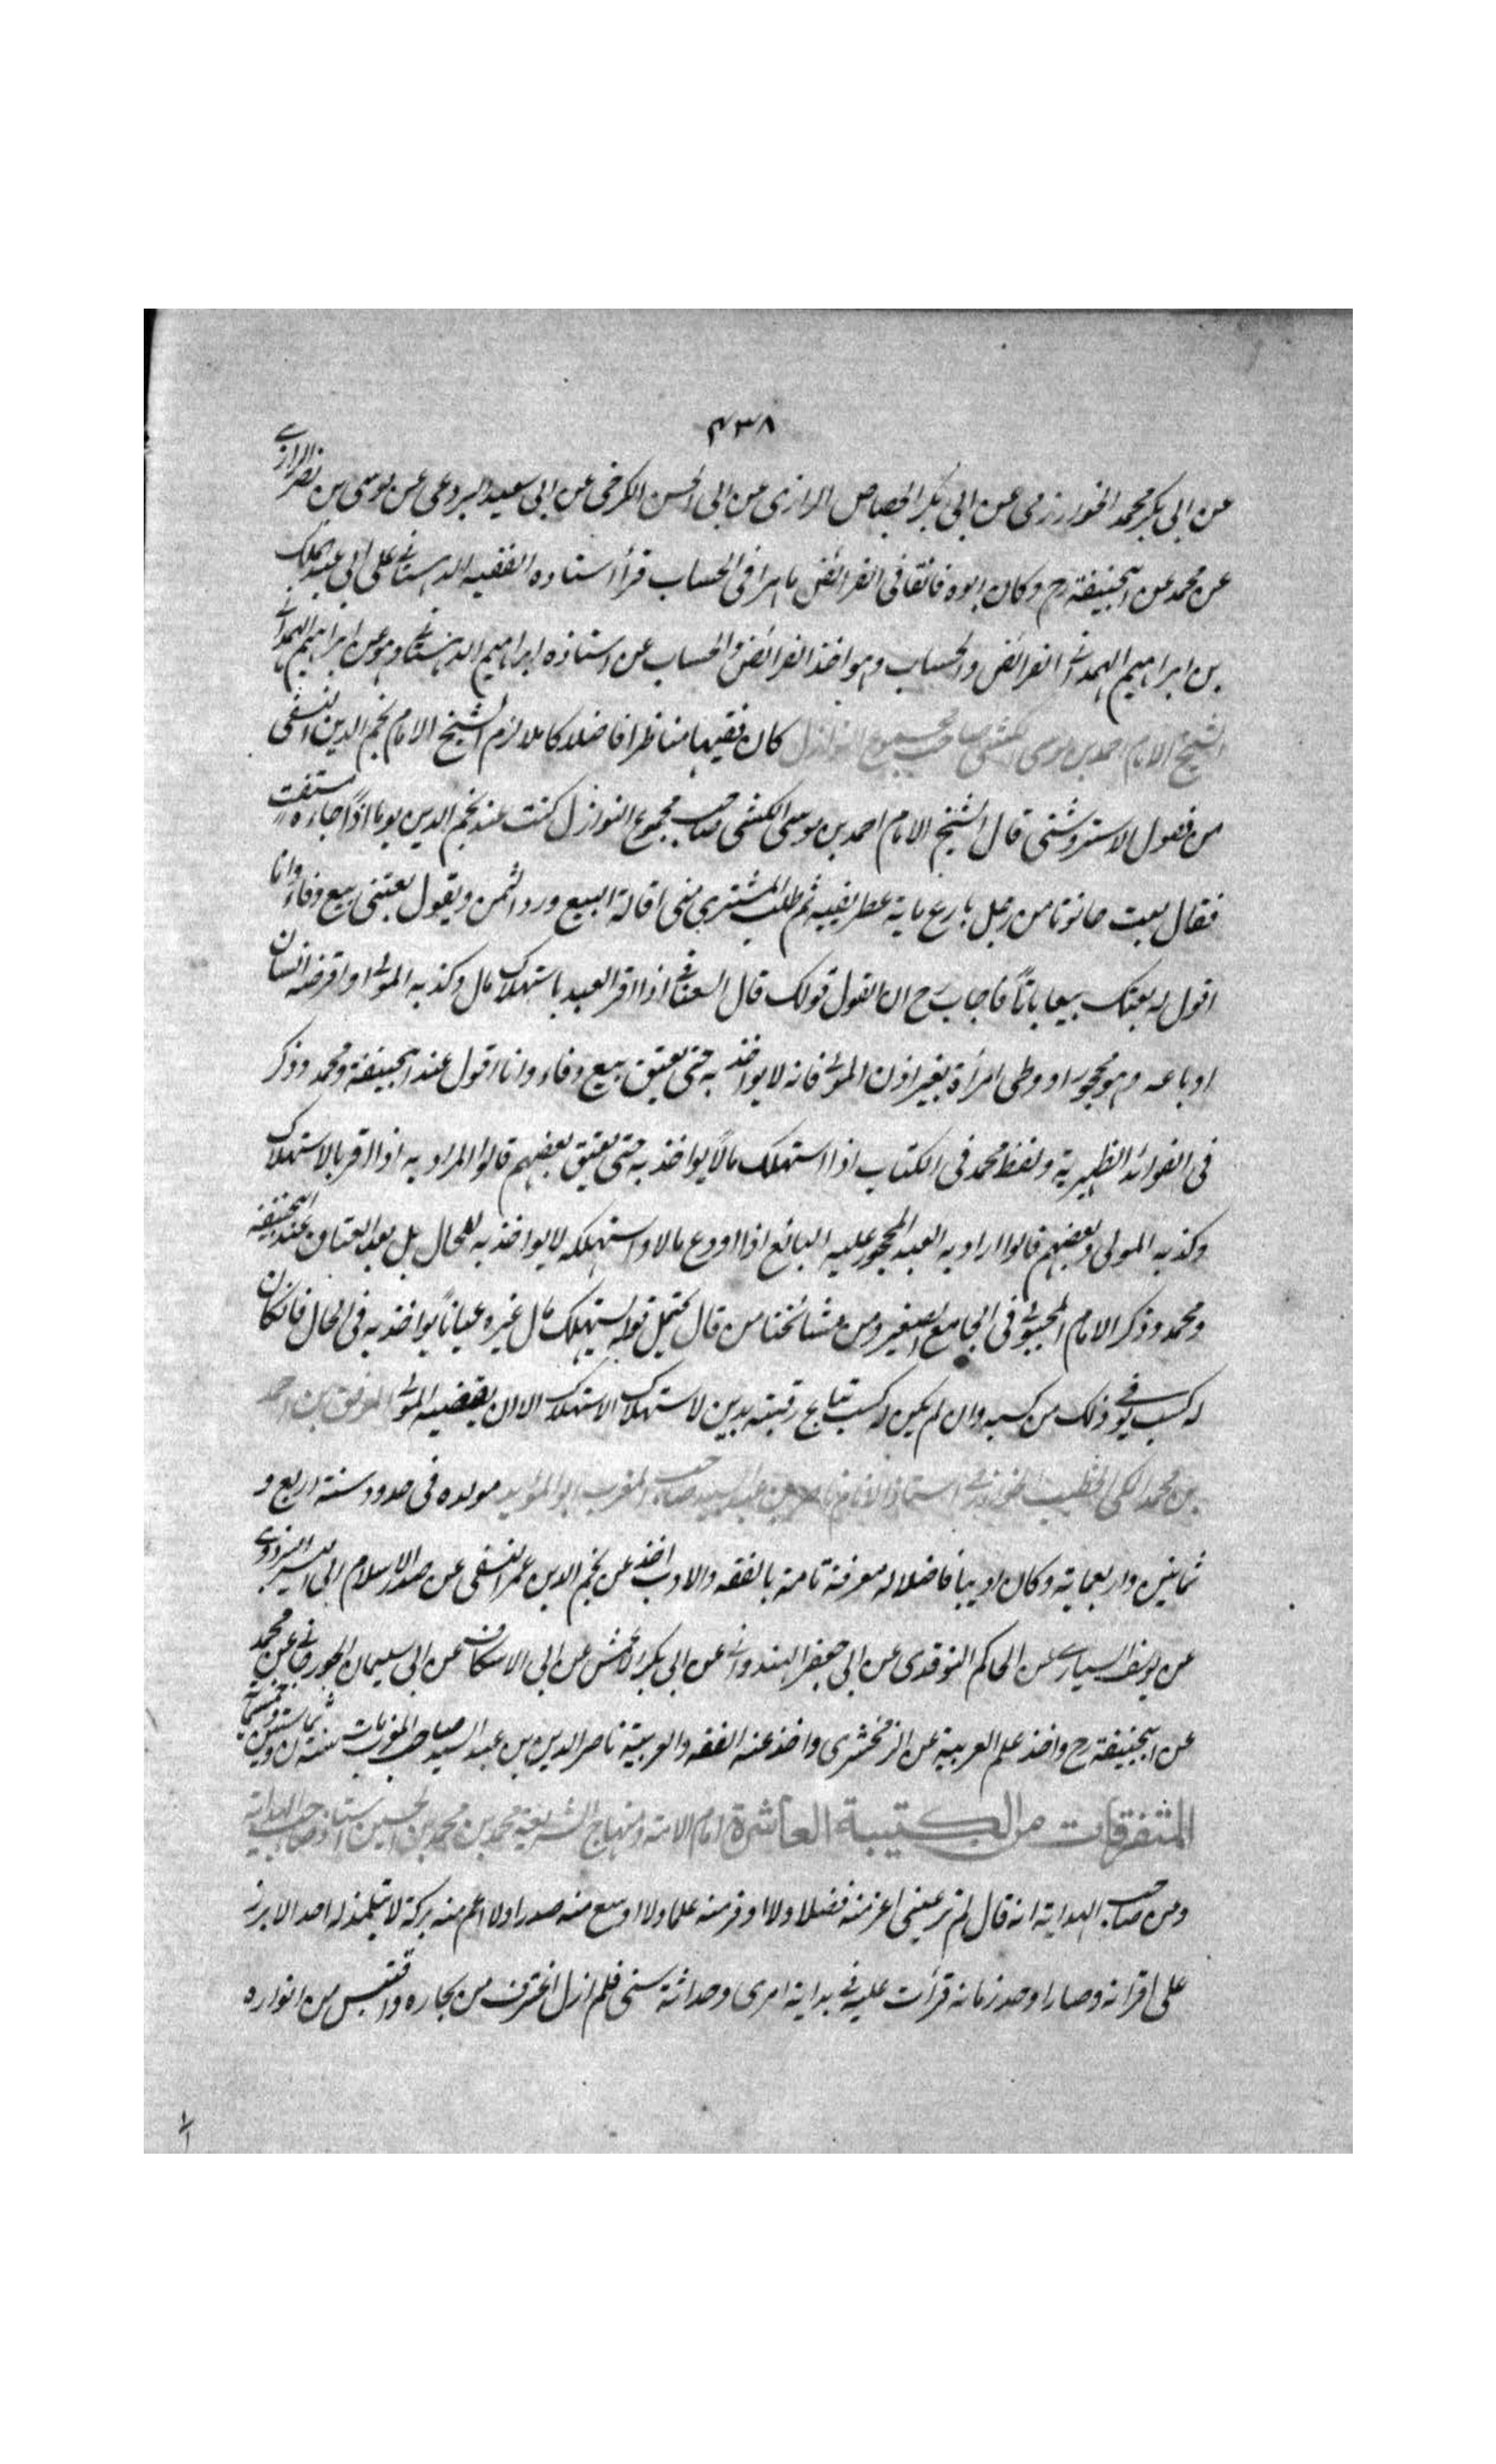 ٤٣٨
عن ابى بكر محمد الخوارزمى عن ابى بكر الجصاص الرازى عن ابى الحسن الكرخى عن ابى سعيد البردعى عن موسى بن نصر الرازى
عن محمد عن ابيحنيفة رح وكان ابوه فائقا فى الفرائض ماهرا فى الحساب قرأ استاده الفقيه الدهستانى على ابى عبد الملك
بن ابراهيم الهمدانى الفرائض والحساب وهو اخذ الفرائض والحساب عن استاذه ابراهيم الدهستانى وهو عن ابراهيم الهمدانى
الشيخ الامام احمد بن موسى الكشى صاحب مجموع النوازل كان فقيها مناظرا فاضلا كاملا لازم الشيخ الامام نجم الدين النسفى
من فصول الاستروشنى قال الشيخ الامام احمد بن موسى الكشى صاحب مجموع النوازل كنت عند نجم الدين يوما اذا جاءه مستفت
فقال بعت حانوتا من رجل باربع ماية عطريفيه ثم طلب المشترى منى اقالة البيع ورد الثمن ويقول بعتنى بيع وفاء وانا
اقول له بعتك بيعا باتا فاجاب رح ان القول قولك قال السغناقى اذا اقر العبد باستهلاك مال وكذبه المولى او اقرضه انسان
او باعه وهو محجور او وطى امرأة بغير اذن المولى فانه لا يواخذ به حتى يعتق بيع وفاء وانا اقول عند ابيحنيفة ومحمد وذكر
فى الفوائد الظهيرية ولفظ محمد فى الكتاب اذا استهلك مالا يواخذ به حتى يعتق بعضهم قالوا المراد به اذا اقر بالاستهلاك
وكذبه المولى وبعضهم قالوا اراد به العبد المحجور عليه البائع اذا اودع مالا واستهلكه لا يواخذ به للحال بل بعد العتاق عند ابيحنيفة
ومحمد وذكر الامام المحبوبى فى الجامع الصغير ومن مشائخنا من قال يحتمل قوله استهلك مال غيره عيانا يواخذ به فى الحال فانكان
له كسب يوفى ذلك من كسبه وان لم يكن له كسب تباع رقبته بدين الاستهلاك الا ان يقضيه المولى الموفق بن احمد
بن محمد المكى الخطيب الخوارزمى استاذ الامام ناصر بن عبد السيد صاحب المغرب ابو المؤيد مولده فى حدود سنة اربع و
ثمانين واربعماية وكان اديبا فاضلا له معرفة تامة بالفقه والادب اخذ عن نجم الدين عمر النسفى عن صدر الاسلام ابى اليسر البزدوى
عن يوسف السيارى عن الحاكم النوقدى عن ابى جعفر الهندوانى عن ابى بكر الاعمش عن ابى بكر الاسكاف عن ابى سليمان الجوزجانى عن محمد
عن ابيحنيفة رح واخذ علم العربية عن الزمخشرى واخذ عنه الفقه والعربية ناصر الدين بن عبد السيد صاحب المغرب مات سنة
المتفرقات من الكتيبة العاشرة امام الائمة ومنهاج الشريعة محمد بن محمد بن الحسين استاذ صاحب الهداية
ومن صاحب الهداية انه قال لم تر عينى اعز منه فضلا ولا اوفر منه علما ولا اوسع منه صدرا ولا اعم منه بركة لا يتلمذ له احد الا برز
على اقرانه وصار اوحد زمانه قرأت عليه فى بداية امرى وحداثة سنى فلم ازل اغترف من بحاره واقتبس من انواره